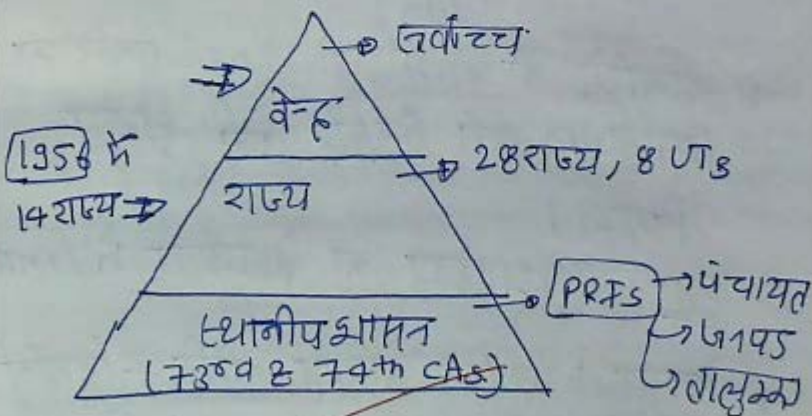 सर्वोच्च
केन्द्र
1956 में
14 राज्य
राज्य
28 राज्य, 8 UTs
स्थानीय शासन
(73rd & 74th CAs)
PRIs
पंचायत
जनपद
तालुका